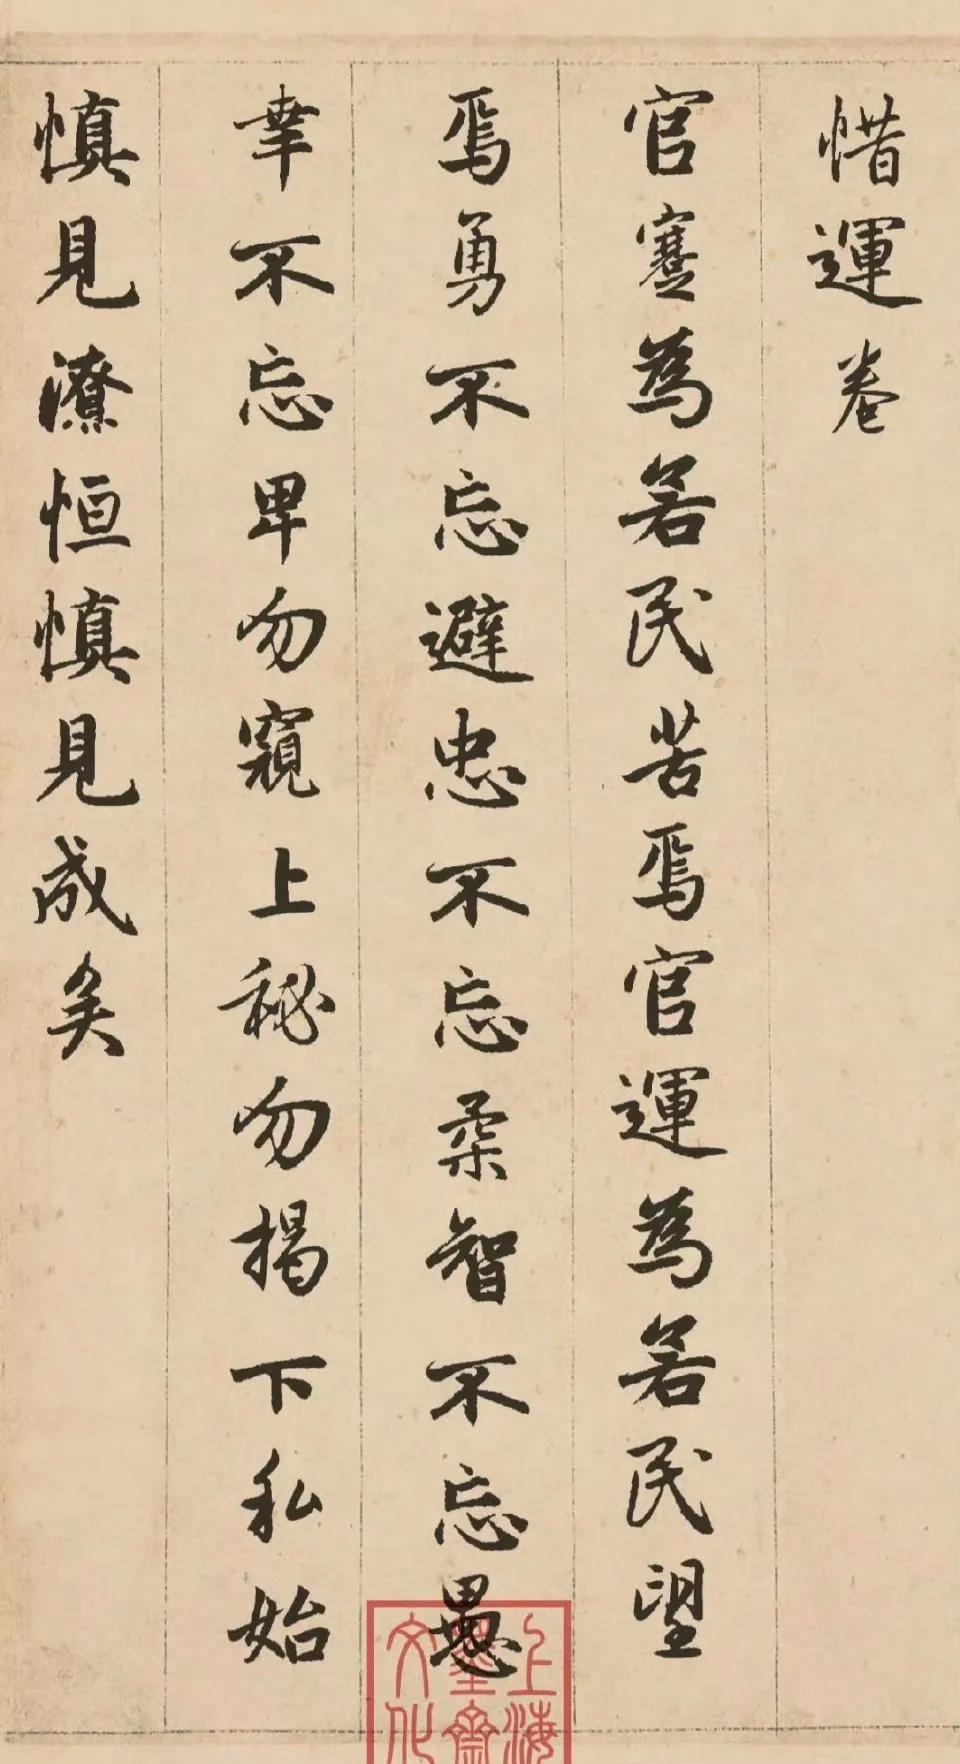 惜運卷
官蹇為若民苦焉官運為若民望
焉勇不忘避忠不忘柔智不忘愚
幸不忘卑勿窺上秘勿揭下私始
慎見潦恒慎見成矣
上海
墨齋
文化